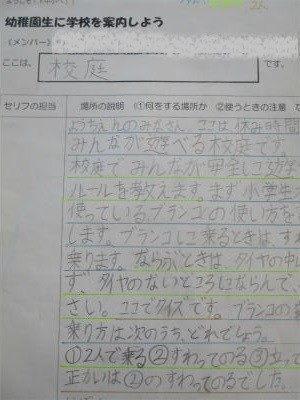 幼稚園生に学校を案内しよう
2人
《メンバー》
ここは、 校庭 です。
セリフの担当 場所の説明 ①何をする場所か ②使うときの注意 な
ようちえんのみなさん、ココは休み時間
みんなが遊べる校庭です。
校庭でみんなが安全に遊
ルールを教えます。まず小学生
使っているブランコの使い方を
します。ブランコに乗るときは、すわ
乗ります。ならぶときは、タイヤの中
ず、タイヤのないところにならんで、
さい。ココでクイズです。ブランコの
乗り方は次のうち、どれでしょう。
①2人で乗る②すわってのる③立って
正かいは②のすわってのるでした。